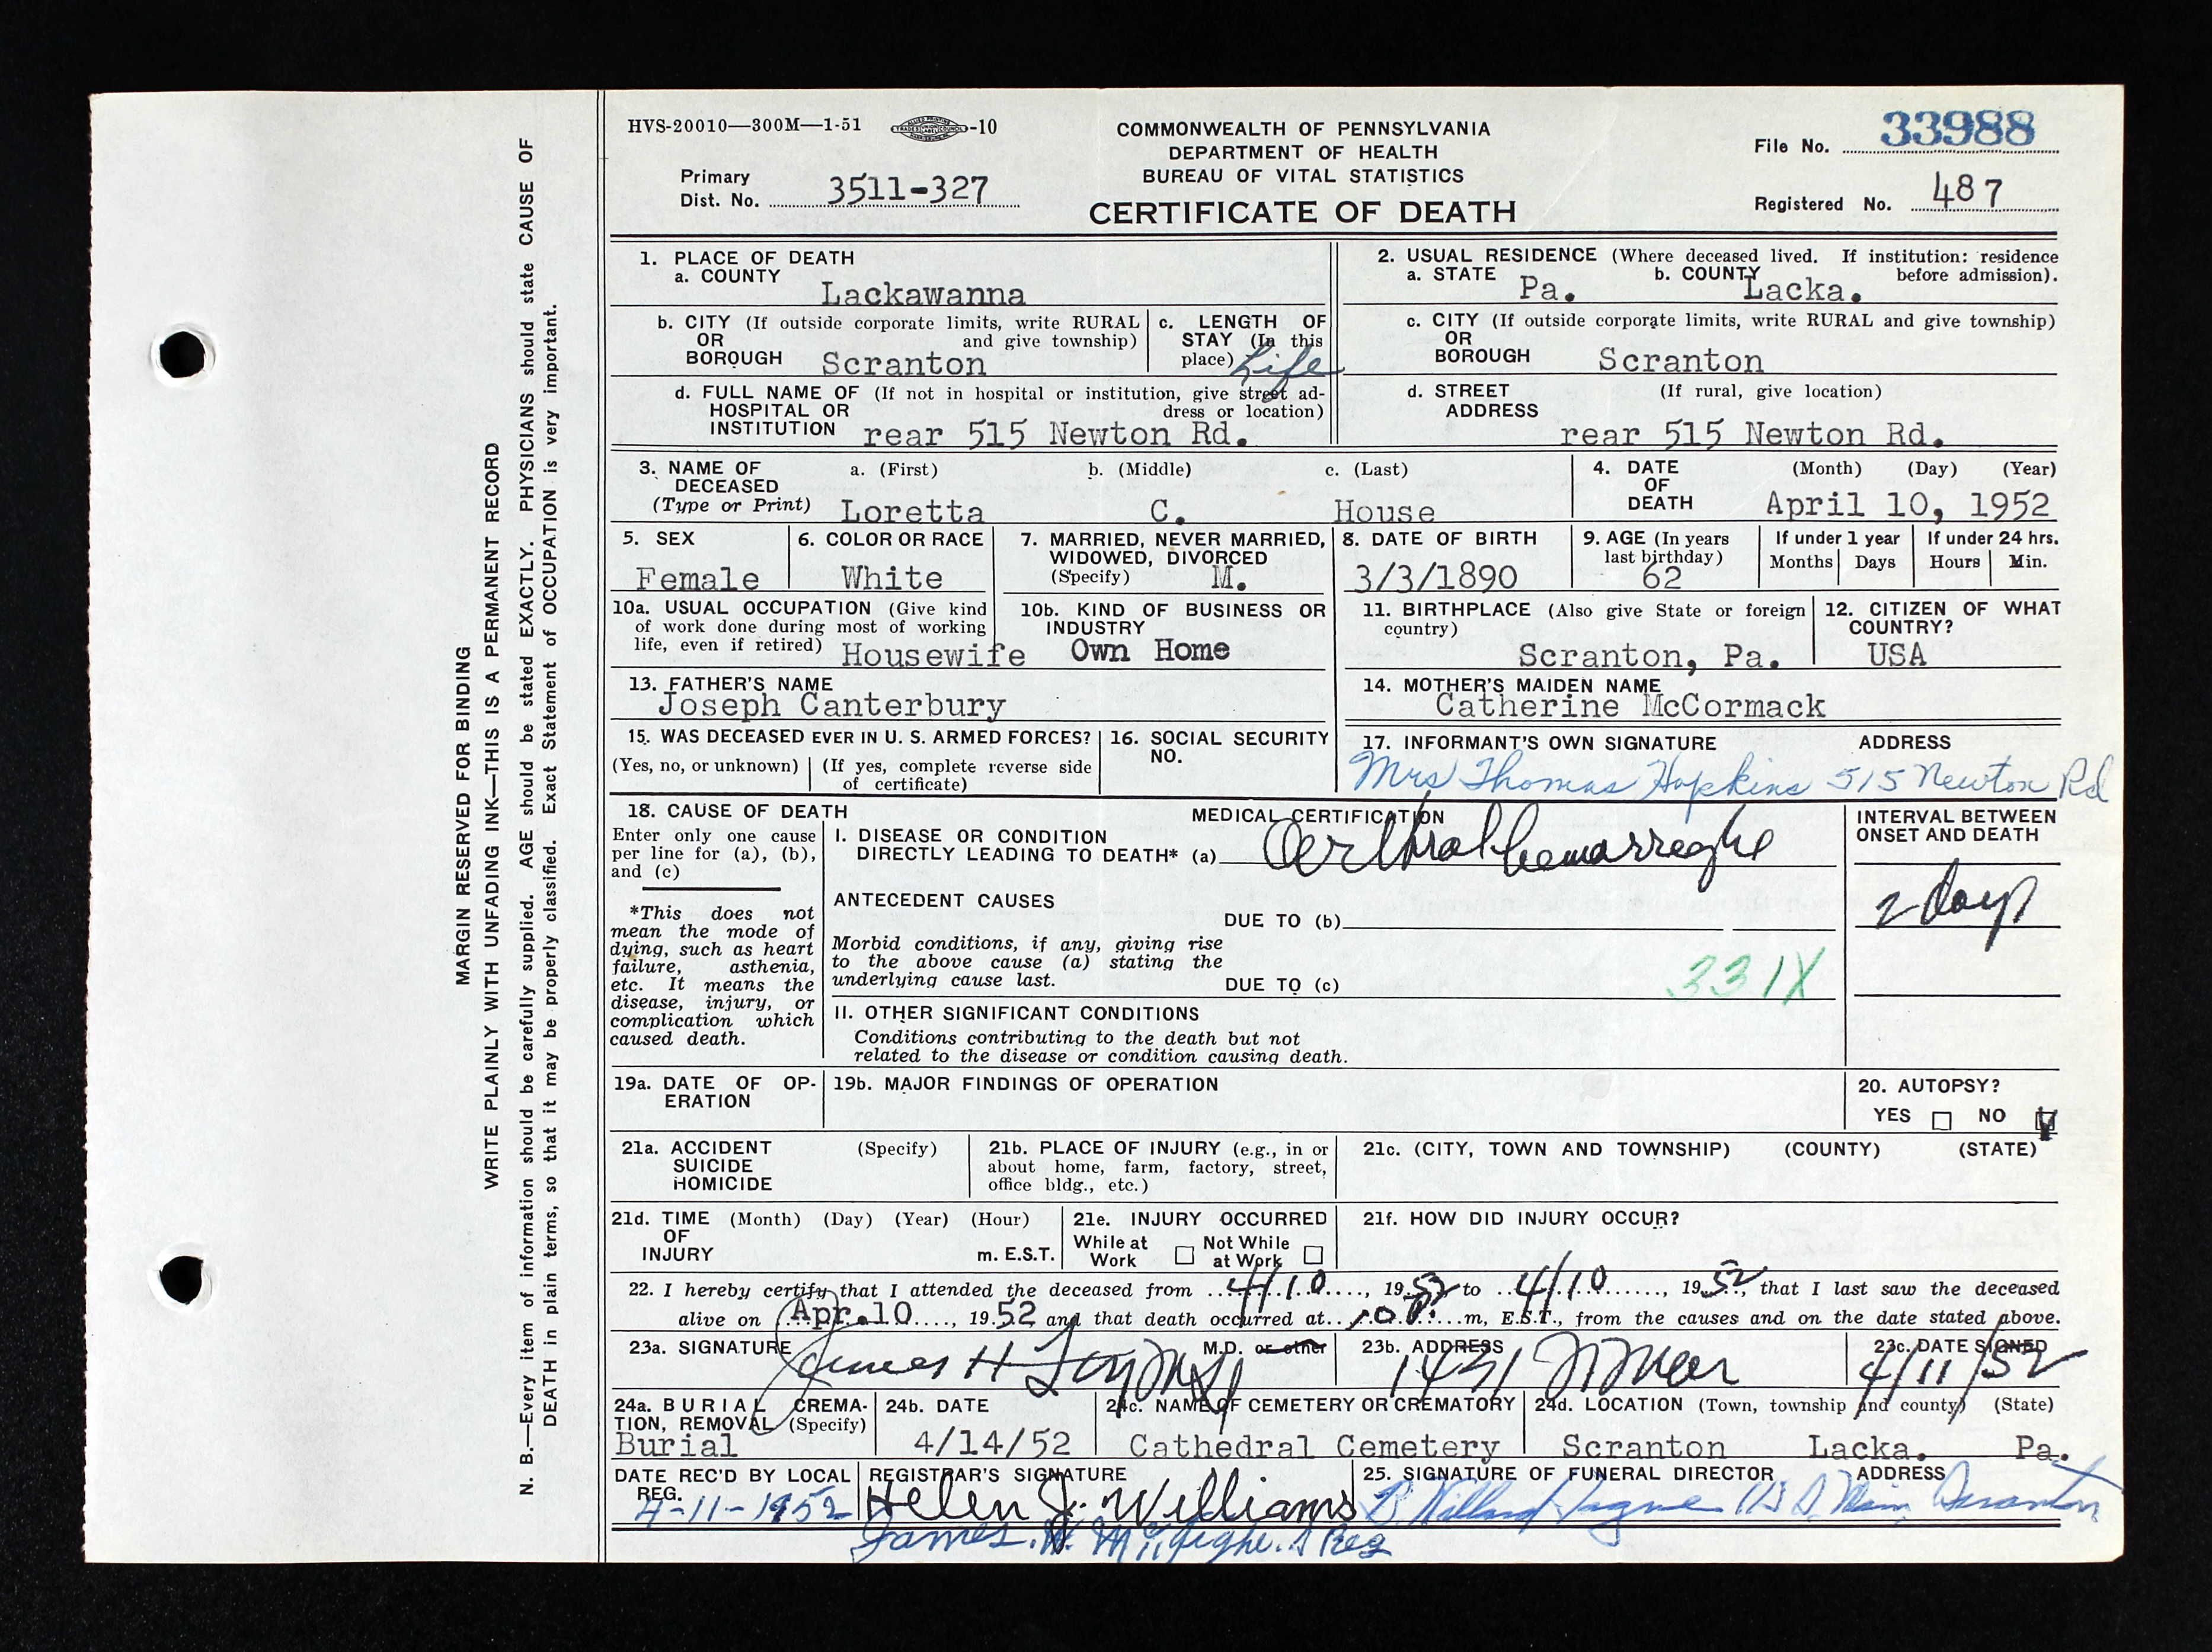 HVS-20010—300M—1-51 -10
COMMONWEALTH OF PENNSYLVANIA
DEPARTMENT OF HEALTH
BUREAU OF VITAL STATISTICS
CERTIFICATE OF DEATH
File No. 33988
Primary
Dist. No. 3511-327
Registered No. 487
MARGIN RESERVED FOR BINDING
WRITE PLAINLY WITH UNFADING INK—THIS IS A PERMANENT RECORD
N. B.—Every item of information should be carefully supplied. AGE should be stated EXACTLY. PHYSICIANS should state CAUSE OF
DEATH in plain terms, so that it may be properly classified. Exact Statement of OCCUPATION is very important.
1. PLACE OF DEATH
a. COUNTY
Lackawanna
2. USUAL RESIDENCE (Where deceased lived. If institution: residence
a. STATE Pa. b. COUNTY Lacka. before admission).
b. CITY (If outside corporate limits, write RURAL
OR and give township)
BOROUGH Scranton
c. LENGTH OF
STAY (In this
place) Life
c. CITY (If outside corporate limits, write RURAL and give township)
OR
BOROUGH Scranton
d. FULL NAME OF (If not in hospital or institution, give street ad-
HOSPITAL OR dress or location)
INSTITUTION rear 515 Newton Rd.
d. STREET (If rural, give location)
ADDRESS
rear 515 Newton Rd.
3. NAME OF a. (First) b. (Middle) c. (Last)
DECEASED
(Type or Print) Loretta C. House
4. DATE (Month) (Day) (Year)
OF
DEATH April 10, 1952
5. SEX
Female
6. COLOR OR RACE
White
7. MARRIED, NEVER MARRIED,
WIDOWED, DIVORCED
(Specify) M.
8. DATE OF BIRTH
3/3/1890
9. AGE (In years
last birthday)
62
If under 1 year
Months Days
If under 24 hrs.
Hours Min.
10a. USUAL OCCUPATION (Give kind
of work done during most of working
life, even if retired) Housewife
10b. KIND OF BUSINESS OR
INDUSTRY
Own Home
11. BIRTHPLACE (Also give State or foreign
country)
Scranton, Pa.
12. CITIZEN OF WHAT
COUNTRY?
USA
13. FATHER'S NAME
Joseph Canterbury
14. MOTHER'S MAIDEN NAME
Catherine McCormack
15. WAS DECEASED EVER IN U. S. ARMED FORCES?
(Yes, no, or unknown) (If yes, complete reverse side
of certificate)
16. SOCIAL SECURITY
NO.
17. INFORMANT'S OWN SIGNATURE ADDRESS
Mrs Thomas Hopkins 515 Newton Rd
18. CAUSE OF DEATH
Enter only one cause
per line for (a), (b),
and (c)
*This does not
mean the mode of
dying, such as heart
failure, asthenia,
etc. It means the
disease, injury, or
complication which
caused death.
MEDICAL CERTIFICATION
I. DISEASE OR CONDITION
DIRECTLY LEADING TO DEATH* (a)
ANTECEDENT CAUSES
DUE TO (b)
Morbid conditions, if any, giving rise
to the above cause (a) stating the
underlying cause last.
DUE TO (c)
331X
II. OTHER SIGNIFICANT CONDITIONS
Conditions contributing to the death but not
related to the disease or condition causing death.
INTERVAL BETWEEN
ONSET AND DEATH
2 days
19a. DATE OF OP-
ERATION
19b. MAJOR FINDINGS OF OPERATION
20. AUTOPSY?
YES NO
21a. ACCIDENT (Specify)
SUICIDE
HOMICIDE
21b. PLACE OF INJURY (e.g., in or
about home, farm, factory, street,
office bldg., etc.)
21c. (CITY, TOWN AND TOWNSHIP) (COUNTY) (STATE)
21d. TIME (Month) (Day) (Year) (Hour)
OF
INJURY m. E.S.T.
21e. INJURY OCCURRED
While at Not While
Work at Work
21f. HOW DID INJURY OCCUR?
22. I hereby certify that I attended the deceased from 4/10, 1952 to 4/10, 1952, that I last saw the deceased
alive on Apr. 10, 1952 and that death occurred at m, E.S.T., from the causes and on the date stated above.
23a. SIGNATURE M.D. or other
James H
23b. ADDRESS
1431 N
23c. DATE SIGNED
4/11/52
24a. BURIAL CREMA-
TION, REMOVAL (Specify)
Burial
24b. DATE
4/14/52
24c. NAME OF CEMETERY OR CREMATORY
Cathedral Cemetery
24d. LOCATION (Town, township and county) (State)
Scranton Lacka. Pa.
DATE REC'D BY LOCAL
REG.
4-11-1952
REGISTRAR'S SIGNATURE
Helen J. Williams
25. SIGNATURE OF FUNERAL DIRECTOR ADDRESS
Main Scranton
James